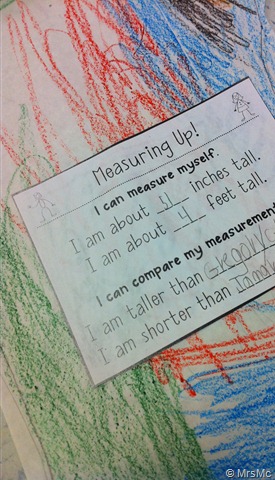 Measuring Up!
I can measure myself.
I am about 51 inches tall.
I am about 4 feet tall.
I can compare my measurement
I am taller than Gregory
I am shorter than
© MrsMc